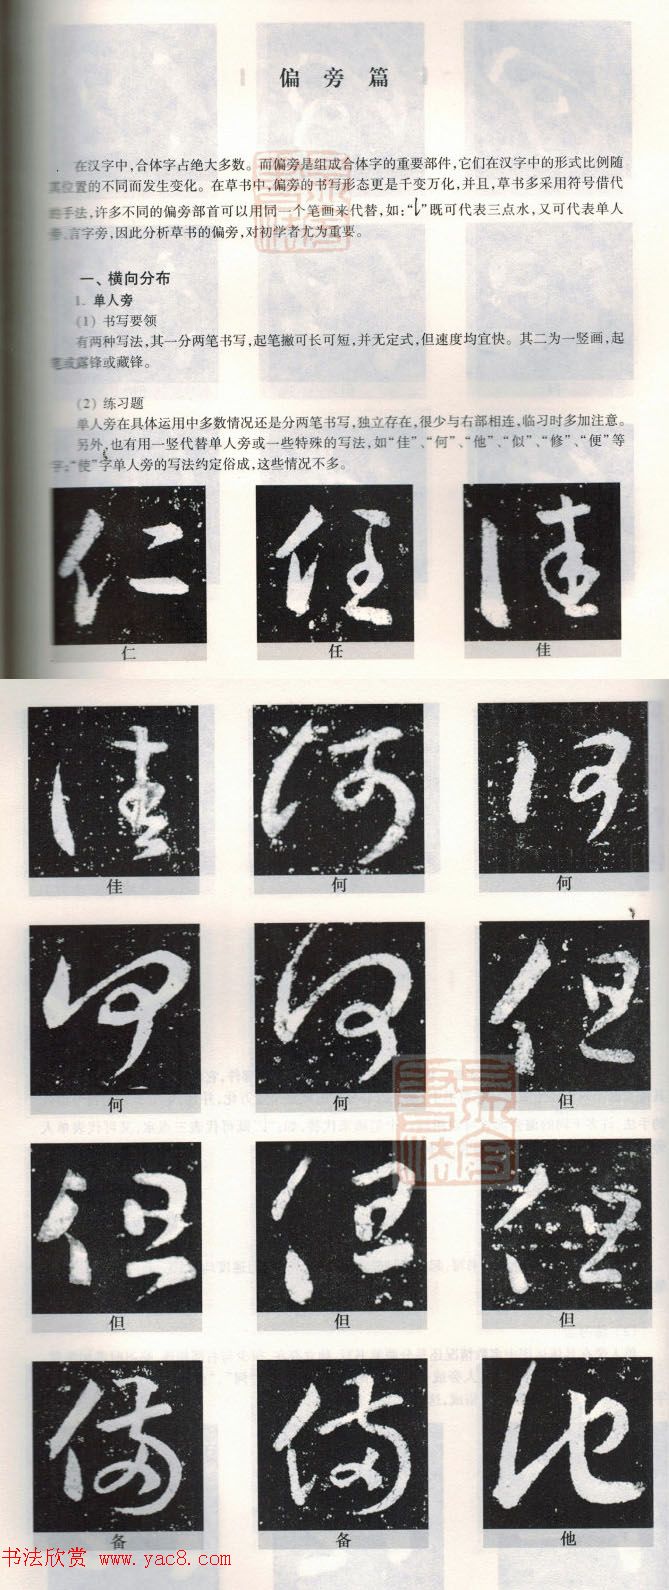 偏旁篇
在汉字中，合体字占绝大多数。而偏旁是组成合体字的重要部件，它们在汉字中的形式比例随
其位置的不同而发生变化。在草书中，偏旁的书写形态更是千变万化，并且，草书多采用符号借代
的手法，许多不同的偏旁部首可以用同一个笔画来代替，如：“”既可代表三点水，又可代表单人
旁、言字旁，因此分析草书的偏旁，对初学者尤为重要。
一、横向分布
1. 单人旁
（1）书写要领
有两种写法，其一分两笔书写，起笔撇可长可短，并无定式，但速度均宜快。其二为一竖画，起
笔或露锋或藏锋。
（2）练习题
单人旁在具体运用中多数情况还是分两笔书写，独立存在，很少与右部相连，临习时多加注意。
另外，也有用一竖代替单人旁或一些特殊的写法，如“佳”、“何”、“他”、“似”、“修”、“便”等
字；“使”字单人旁的写法约定俗成，这些情况不多。
仁 任 佳
佳 何 何
何 何 但
但 但 但
备 备 他
书法欣赏 www.yac8.com